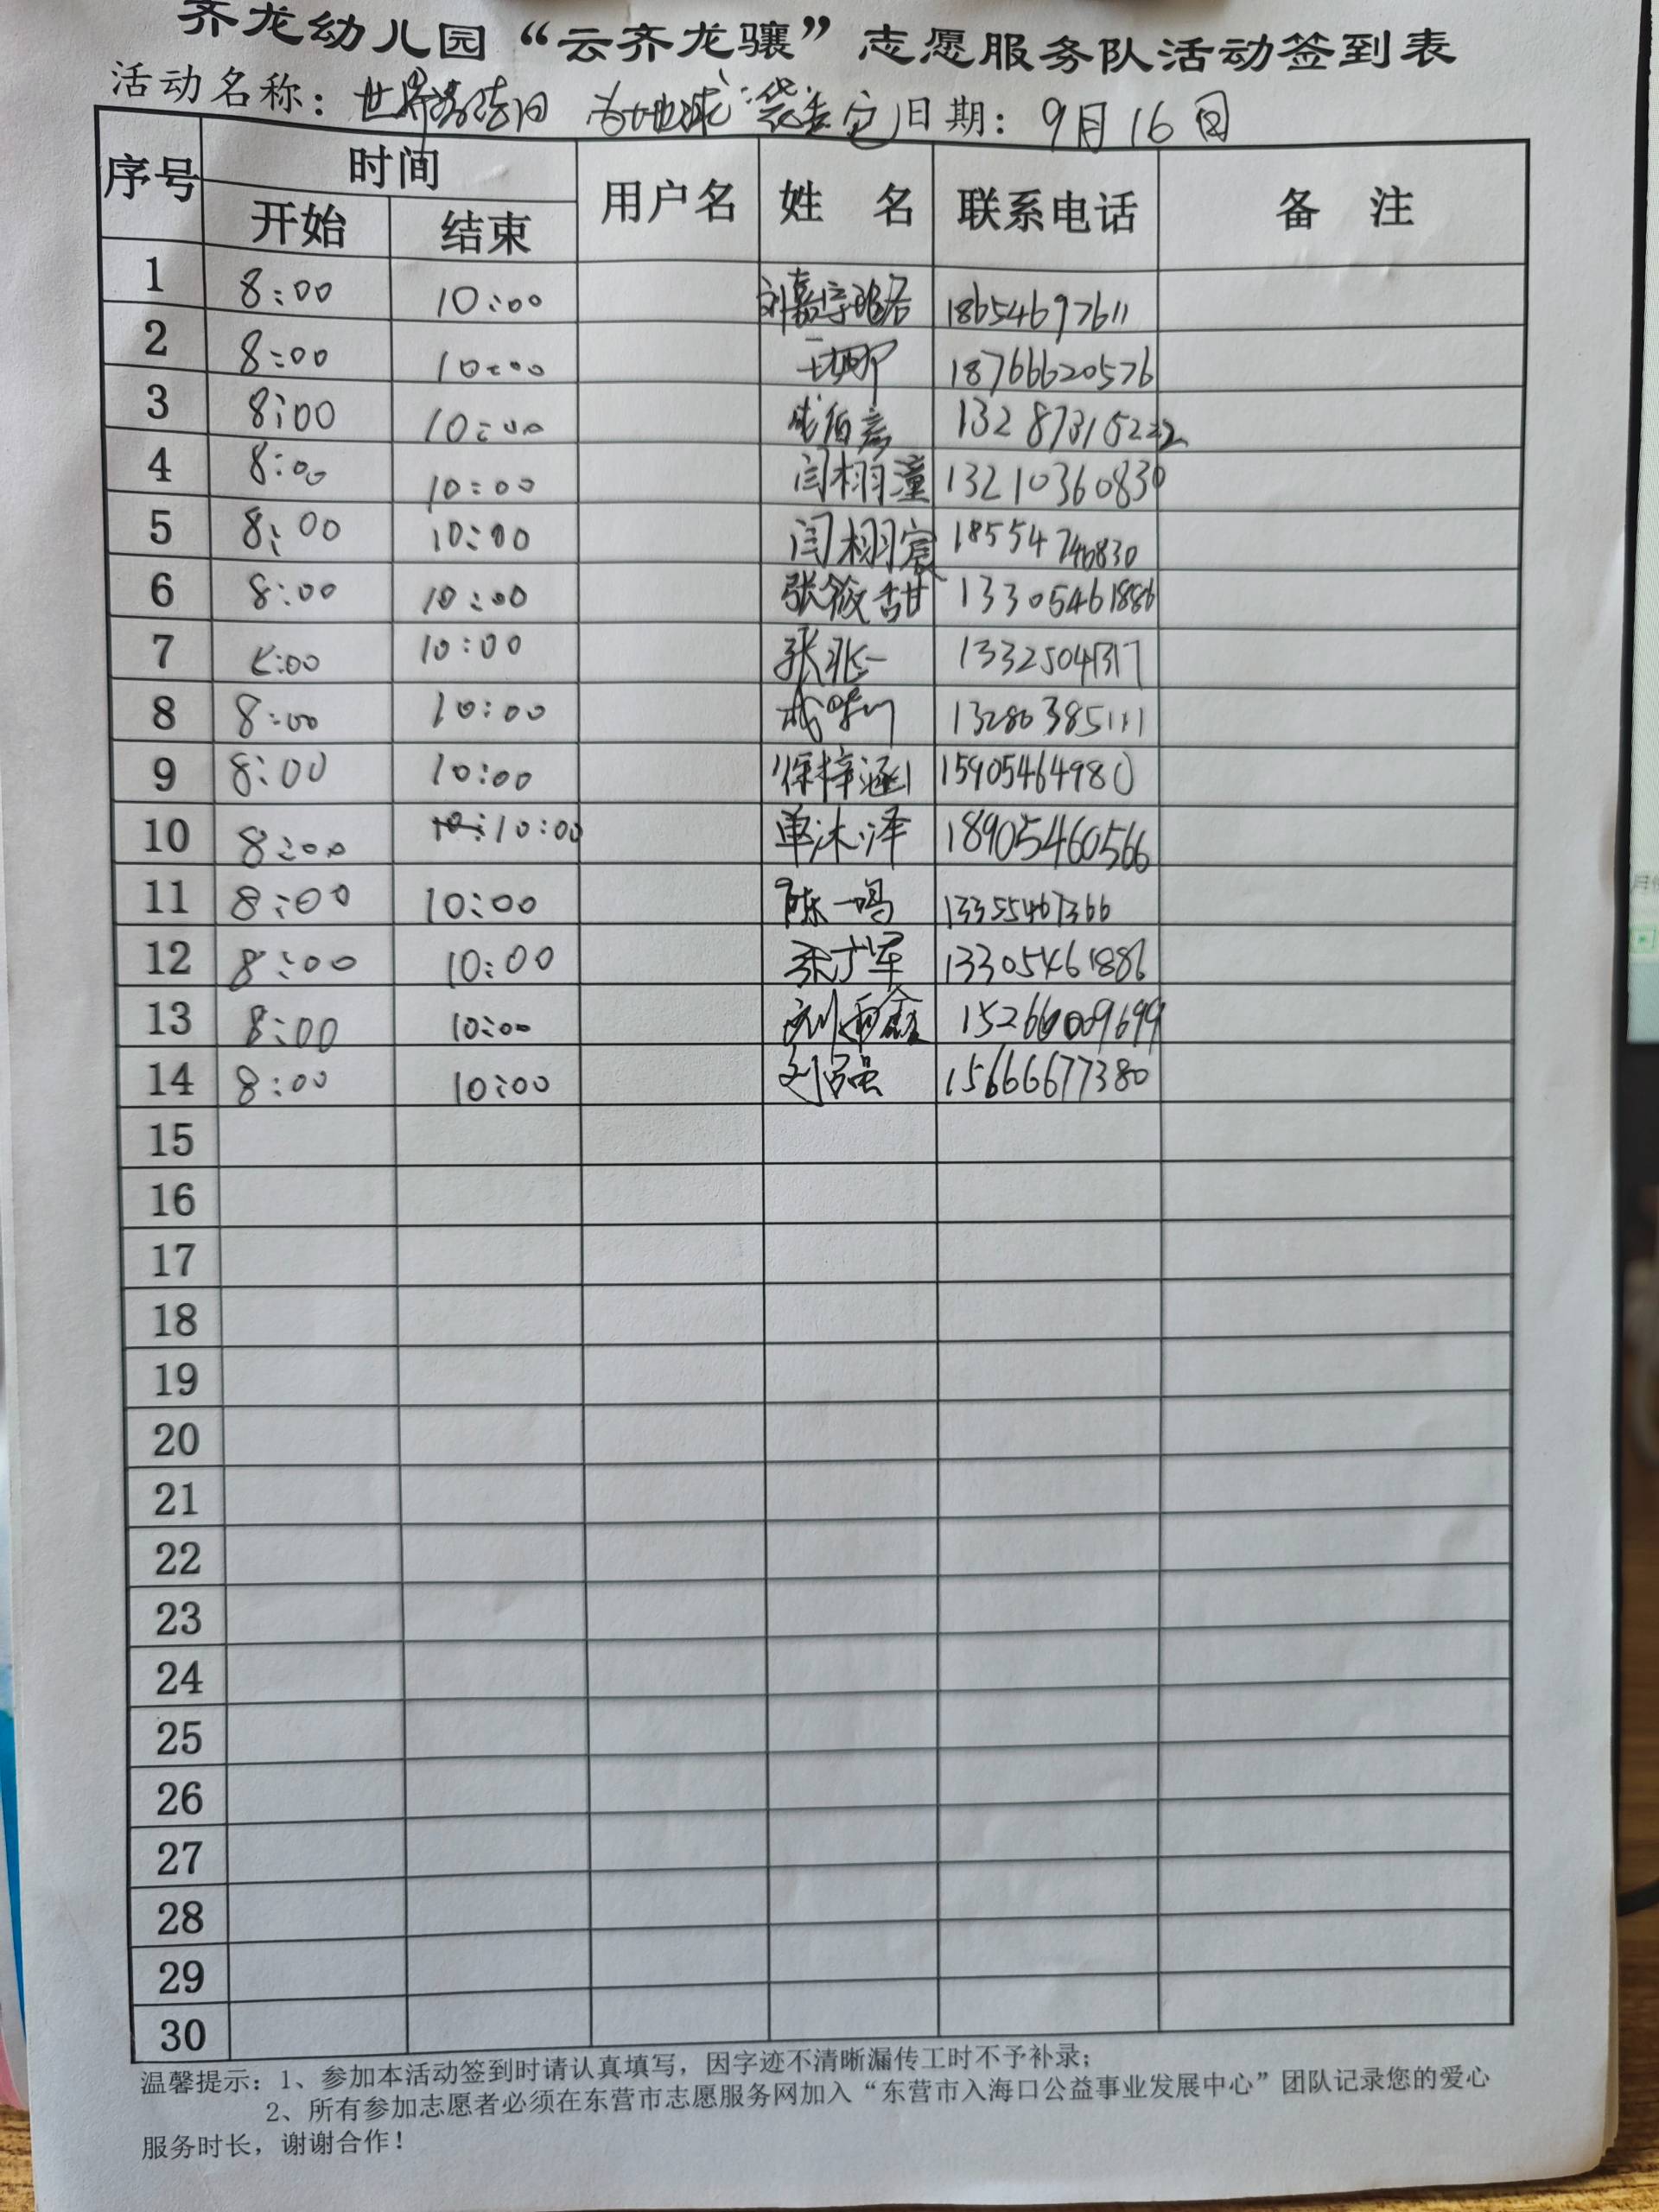 齐龙幼儿园“云齐龙骧”志愿服务队活动签到表
活动名称：世界清洁日 为地球 日期：9月16日
序号 时间 用户名 姓 名 联系电话 备 注
开始 结束
1 8:00 10:00 18654697611
2 8:00 10:00 18766620576
3 8:00 10:00 13287315222
4 8:00 10:00 闫栩潼 13210360830
5 8:00 10:00 闫栩宸 18554746830
6 8:00 10:00 张筱甜 13305461886
7 :00 10:00 张兆一 13325041317
8 8:00 10:00 13280385111
9 8:00 10:00 徐梓涵 15905464980
10 8:00 10:00 单沐泽 18905460566
11 8:00 10:00 陈一鸣 13355467366
12 8:00 10:00 13305461886
13 8:00 10:00 15266009699
14 8:00 10:00 刘强 15666677380
15
16
17
18
19
20
21
22
23
24
25
26
27
28
29
30
温馨提示：1、参加本活动签到时请认真填写，因字迹不清晰漏传工时不予补录；
2、所有参加志愿者必须在东营市志愿服务网加入“东营市入海口公益事业发展中心”团队记录您的爱心
服务时长，谢谢合作！